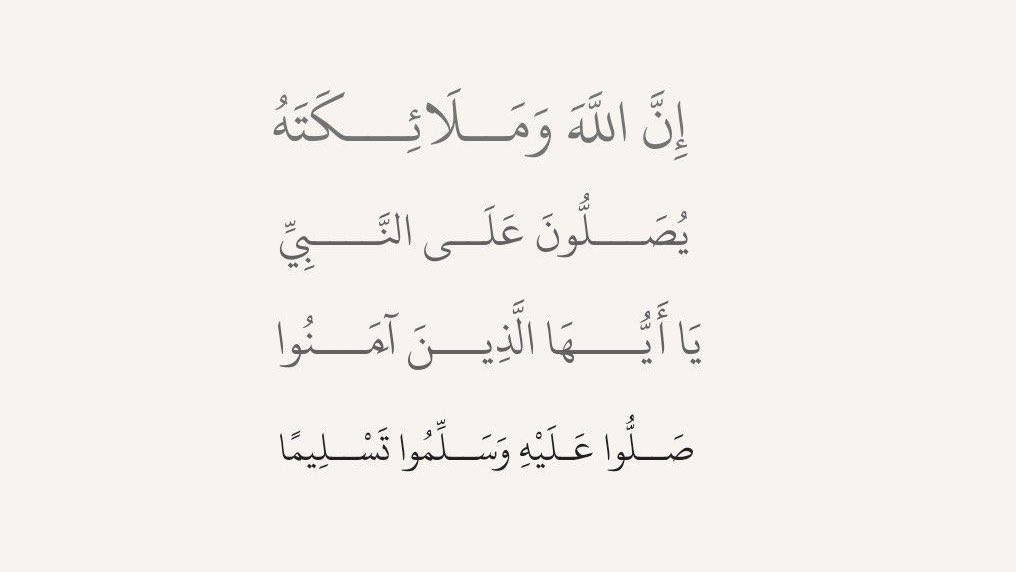 إِنَّ اللَّهَ وَمَـــلَائِــــكَتَهُ
يُصَــــلُّونَ عَلَـــى النَّـــــبِيِّ
يَا أَيُّـــــهَا الَّذِيــــنَ آمَــــنُوا
صَـــلُّوا عَــلَيْهِ وَسَـــلِّمُوا تَسْـــلِيمًا